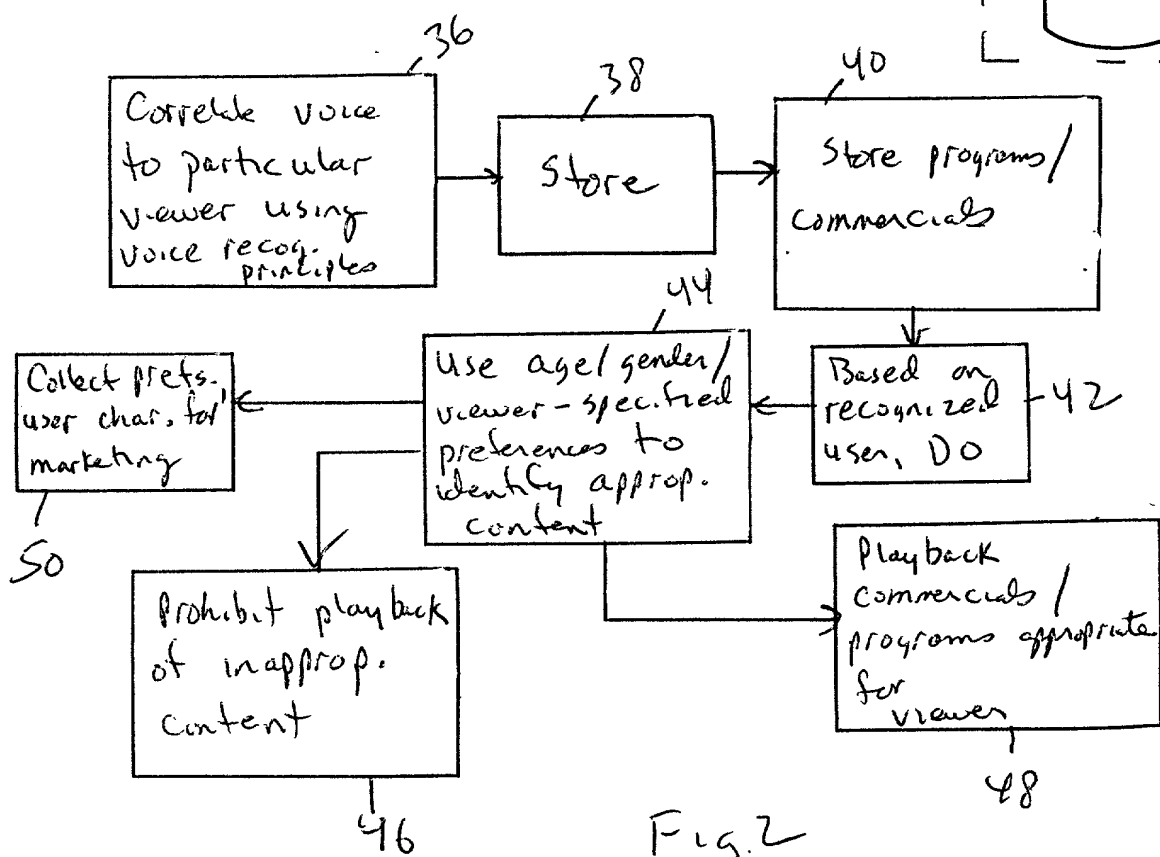 36
Correlate voice
to particular
viewer using
voice recog.
principles
38
Store
40
Store programs/
commercials
42
Based on
recognized
user, DO
44
Use age/gender/
viewer-specified
preferences to
identify approp.
content
50
Collect prefs.
user char. for
marketing
46
Prohibit playback
of inapprop.
content
48
Playback
commercials/
programs appropriate
for
viewer
Fig.2